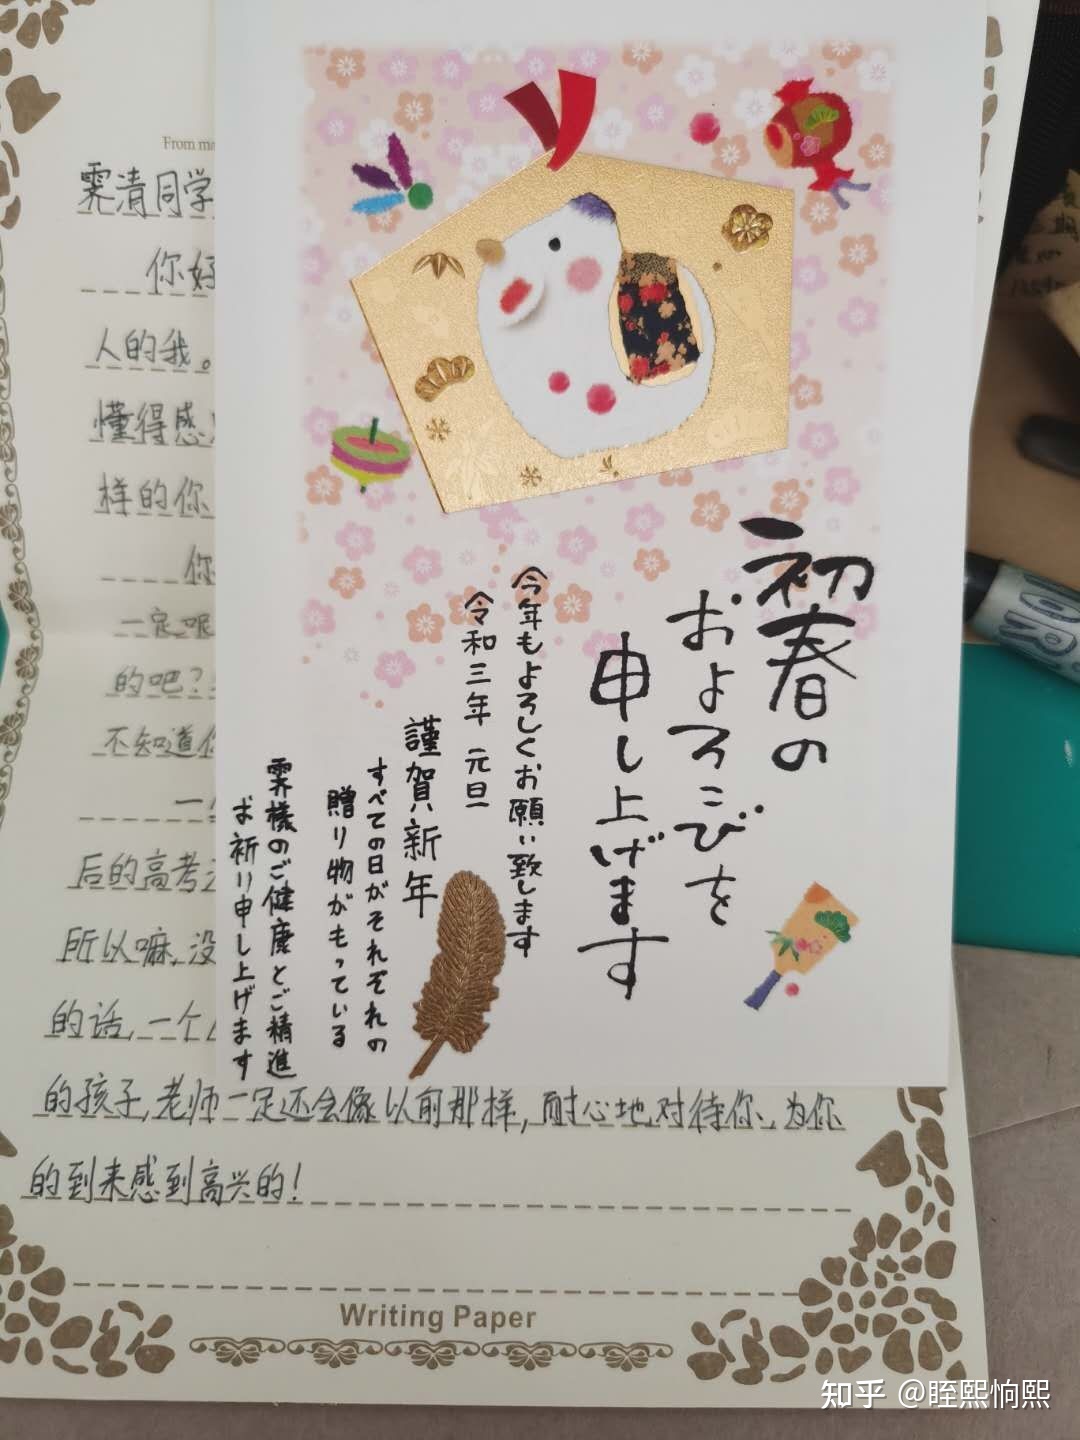 From ma
霁清同学
你好
人的我。
懂得感
样的你
你
一定呢
的吧?
不知道你
一
后的高考
所以嘛,没
的话,一个人
的孩子,老师一定还会像以前那样,耐心地对待你,为你
的到来感到高兴的!
Writing Paper
初春の
およろこびを
申し上げます
今年もよろしくお願い致します
令和三年 元旦
謹賀新年
すべての日がそれぞれの
贈り物がもっている
霁様のご健康とご精進
お祈り申し上げます
知乎 @眰熙恦熙